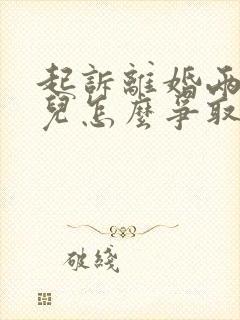 起訴離婚兩
兒怎麼爭取
破綫